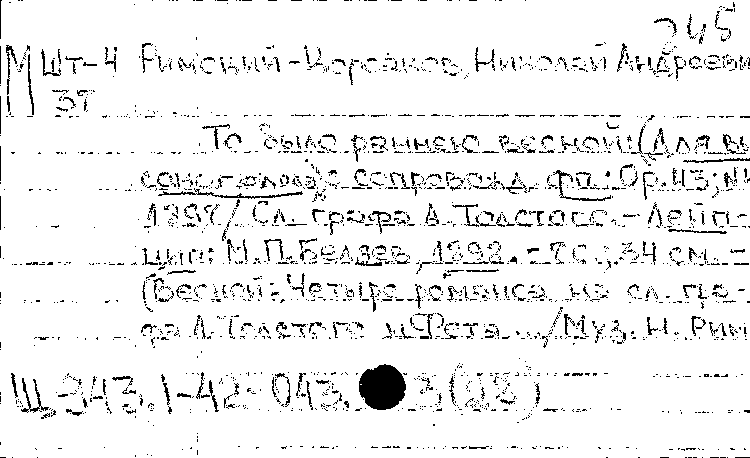 245
М Шт-4 Римский-Корсаков, Николай Андреевич
37
То было раннею весной: (Для вы
сок. голоса) с сопровожд. фп.: Ор. 43; №
1897/ Сл. графа А. Толстого. - Лейп-
циг: М.П. Беляев, 1898. - 7 с.; 34 см. -
(Весной: Четыре романса на сл. гра-
фа А. Толстого и Фета .../ Муз. Н. Рим
Щ-943.1-42-043. 3(28)